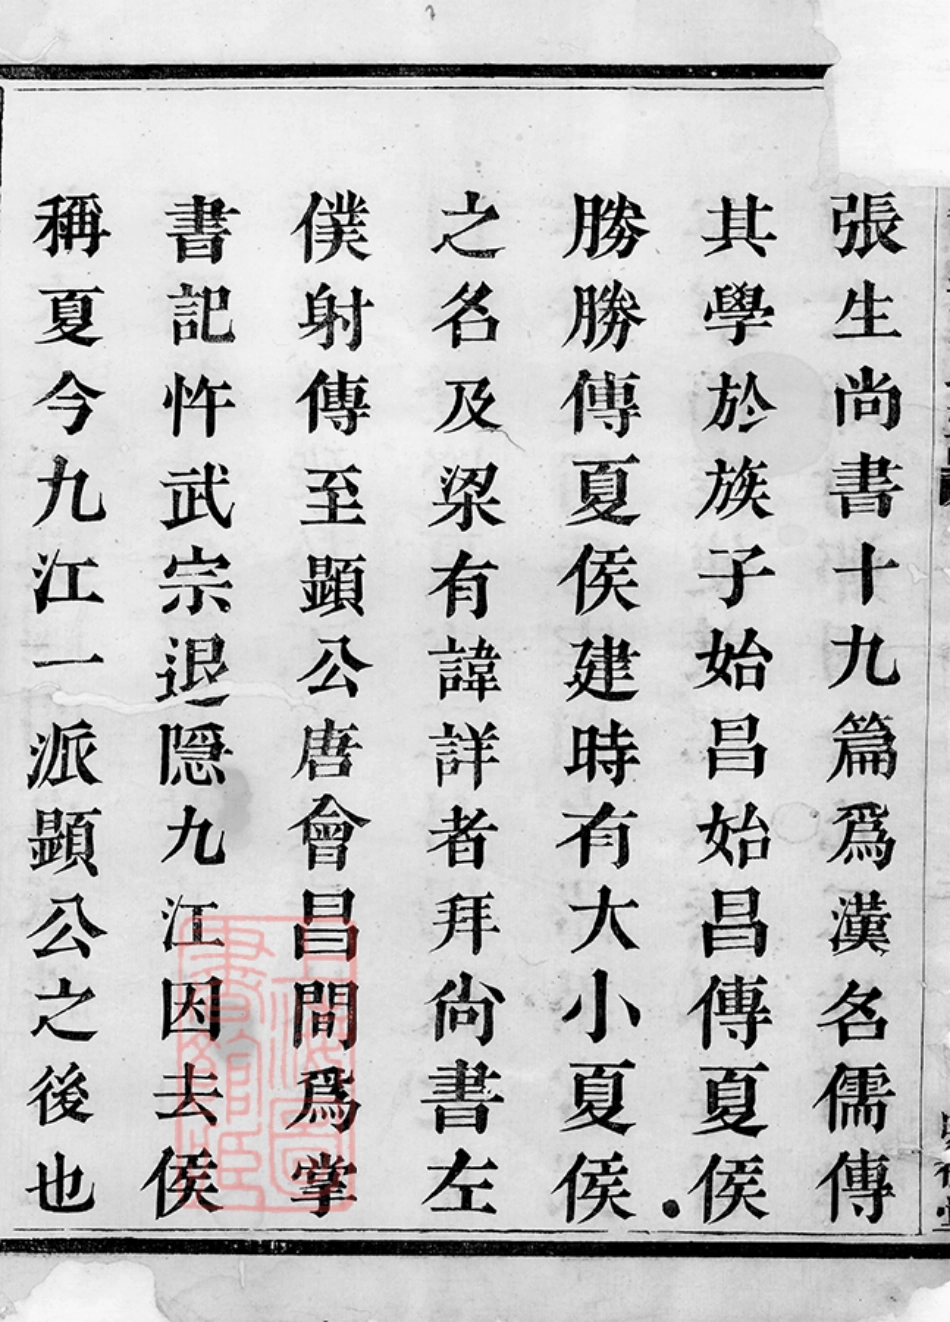 張生尚書十九篇爲漢名儒傳
其學於族子始昌始昌傳夏侯
勝勝傳夏侯建時有大小夏侯
之名及梁有諱詳者拜尙書左
僕射傳至顕公唐會昌間爲掌
書記忤武宗退隱九江因去侯
稱夏今九江一派顕公之後也